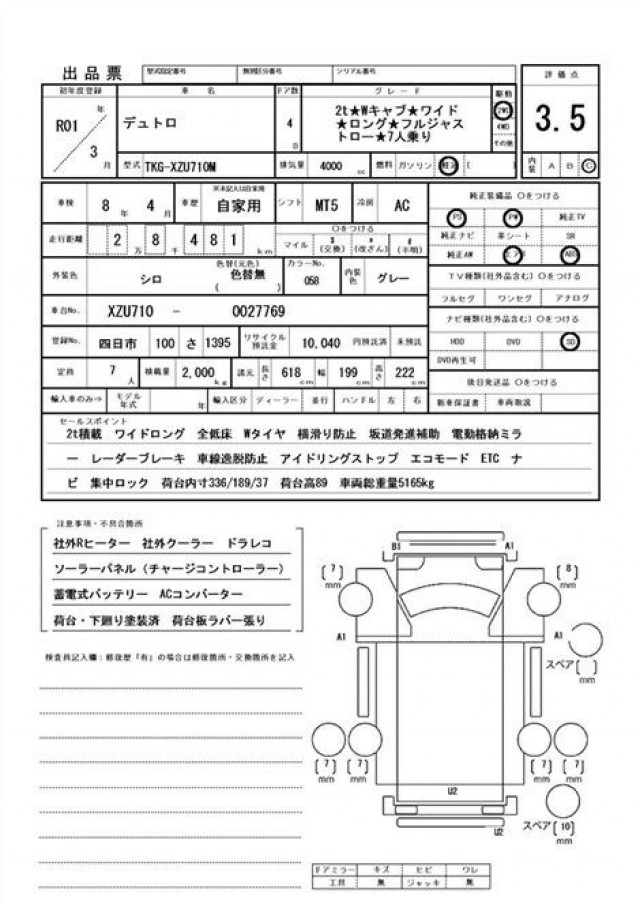 出品票 型式指定番号 類別区分番号 シリアル番号
評価点
3.5
初年度登録 車名 ドア数 グレード 駆動
R01 年 3 月
デュトロ
4 D
2t★Wキャブ★ワイド
★ロング★フルジャス
トロー★7人乗り
2WD
4WD
その他
型式 TKG-XZU710M 排気量 4000 cc 燃料 ガソリン 軽油 ( )
内装 A B C
車検 8 年 4 月 車歴 ※未記入は自家用 自家用 シフト MT5 冷房 AC
走行距離 2 万 8 千 481 km
○をつける
マイル $ (交換) * (改ざん) # (不明)
外装色 シロ 色替(元色) 色替無 ( ) カラーNo. 058 内装色 グレー
車台No. XZU710 - 0027769
登録No. 四日市 100 さ 1395 リサイクル預託金 10,040 円預託済 未預託
定員 7 人 積載量 2,000 kg 諸元 長さ 618 cm 幅 199 cm 高さ 222 cm
輸入車のみ⇒ モデル年式 年 輸入区分 ディーラー 並行 ハンドル 左 右
純正装備品 ○をつける
PS PW 純正TV
純正ナビ 革シート SR
純正AW エアB ABS
TV種類(社外品含む) ○をつける
フルセグ ワンセグ アナログ
ナビ種類(社外品含む) ○をつける
HDD DVD SD
DVD再生可
後日発送品 ○をつける
新車保証書 車両取説
セールスポイント
2t積載 ワイドロング 全低床 Wタイヤ 横滑り防止 坂道発進補助 電動格納ミラ
ー レーダーブレーキ 車線逸脱防止 アイドリングストップ エコモード ETC ナ
ビ 集中ロック 荷台内寸336/189/37 荷台高89 車両総重量5165kg
注意事項・不具合箇所
社外Rヒーター 社外クーラー ドラレコ
ソーラーパネル(チャージコントローラー)
蓄電式バッテリー ACコンバーター
荷台・下廻り塗装済 荷台板ラバー張り
検査員記入欄:修復歴「有」の場合は修復箇所・交換箇所を記入
B1 A1
[7] mm [8] mm
A1 A1
スペア[ ] mm
[7] mm [7] mm [7] mm [7] mm
U2
U2
スペア[10] mm
ドアミラー キズ ヒビ ワレ
工具 無 ジャッキ 無